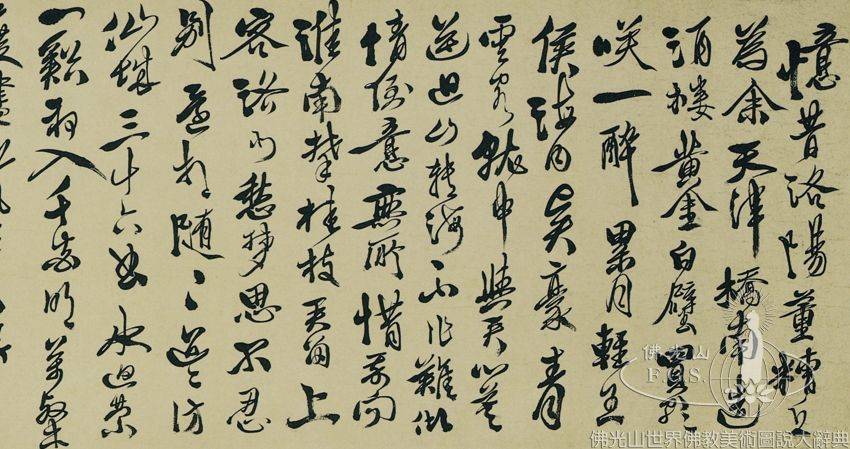 憶昔洛陽董糟丘
為余天津橋南造
酒樓黃金白璧買歌
咲一醉累月輕王
侯海內賢豪青
雲客就中與君心莫
逆迴山轉海不作難傾
情倒意無所惜我向
淮南攀桂枝君留上
客洛北愁夢思不忍
別還相隨〻迢〻訪
仙城三十六曲水迴縈
一谿初入千花明萬壑
佛光山
F.G.S.
佛光山世界佛教美術圖說大辭典